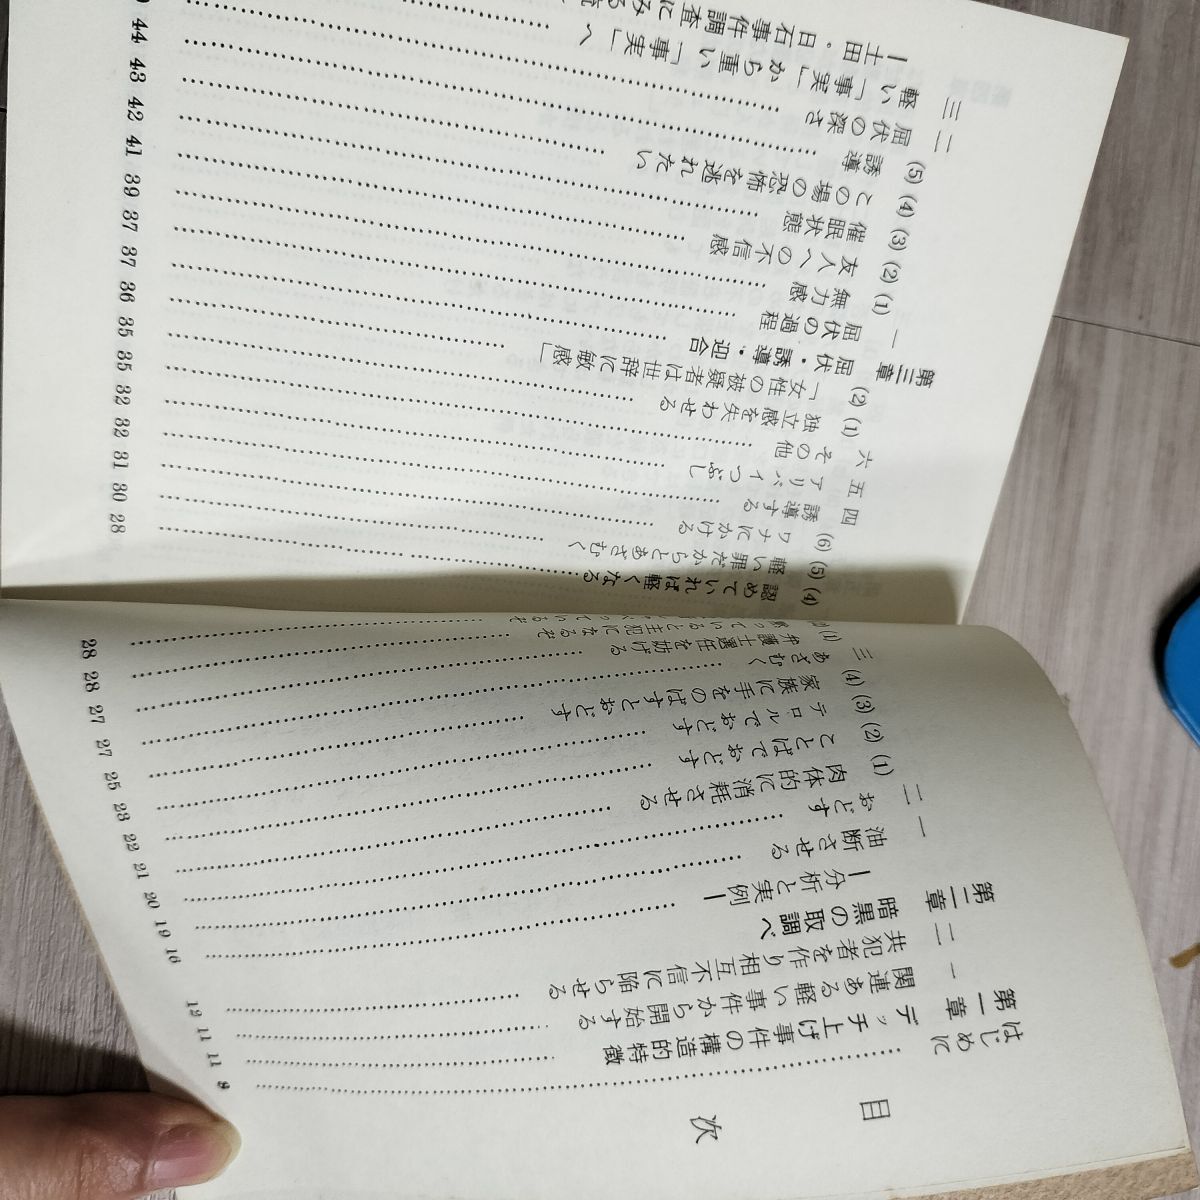 目次
はじめに……9
第一章 デッチ上げ事件の構造的特徴……11
一 関連ある軽い事件から開始する……11
二 共犯者を作り相互不信に陥らせる……12
第二章 暗黒の取調べ
―分析と実例―……16
一 油断させる……19
二 おどす……20
(1) 肉体的に消耗させる……21
(2) ことばでおどす……22
(3) テロルでおどす……23
(4) 家族に手をのばすとおどす……25
三 あざむく……27
(1) 弁護士選任を妨げる……27
(2) 黙っていると主犯になるぞ……28
28
(4) 認めていれば軽くなる……28
(5) 軽い罪だからとあざむく……30
(6) ワナにかける……31
四 誘導する……32
五 アリバイつぶし……32
六 その他……35
(1) 独立感を失わせる……35
(2) 「女性の被疑者は世辞に敏感」……36
第三章 屈伏・誘導・迎合……37
一 屈伏の過程……37
(1) 無力感……39
(2) 友人への不信感……41
(3) 催眠状態……42
(4) この場の恐怖を逃れたい……43
(5) 誘導……44
二 屈伏の深さ……
三 軽い「事実」から重い「事実」へ
―土田・日石事件調査にみる